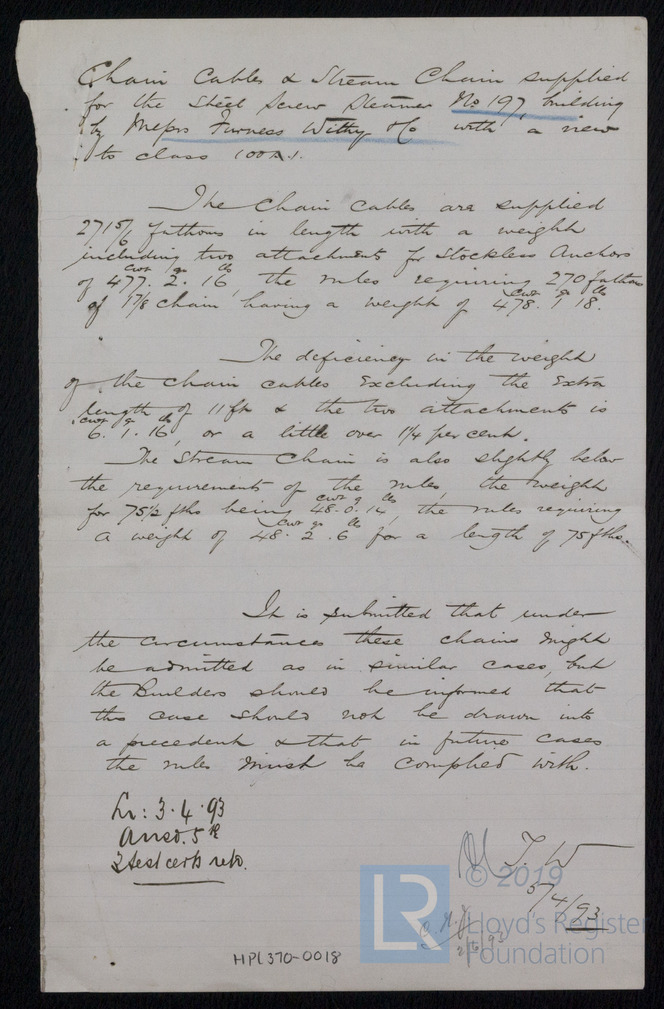 Chain Cables & Stream Chain supplied
for the Steel Screw Steamer No 197, building
by Messrs Furness Withy & Co with a view
to class 100A1.
The Chain cables are supplied
271 5/6 fathoms in length with a weight
including two attachments for Stockless Anchors
cwt qr lb
of 477. 2. 16, the rules requiring 270 fathoms
cwt qr lb
of 1 7/8 chain having a weight of 478. 1. 18.
The deficiency in the weight
of the chain cables Excluding the Extra
length of 11 ft & the two attachments is
cwt qr lb
6. 1. 16, or a little over 1¼ per cent.
The Stream Chain is also slightly below
the requirements of the rules, the weight
cwt q lbs
for 75½ fths being 48. 0. 14, the rules requiring
cwt qr lb
a weight of 48. 2. 6 for a length of 75 fths.
It is submitted that under
the circumstances these chains might
be admitted as in similar cases, but
the Builders should be informed that
this case should not be drawn into
a precedent & that in future cases
the rules must be complied with.
Lr: 3.4.93
Ansd. 5th
2 test certs retd.
J. W
5/4/93
2/6/93
HPL370-0018
LR
© 2019
Lloyd's Register
Foundation